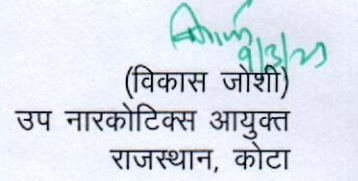 9/3/23
(विकास जोशी)
उप नारकोटिक्स आयुक्त
राजस्थान, कोटा